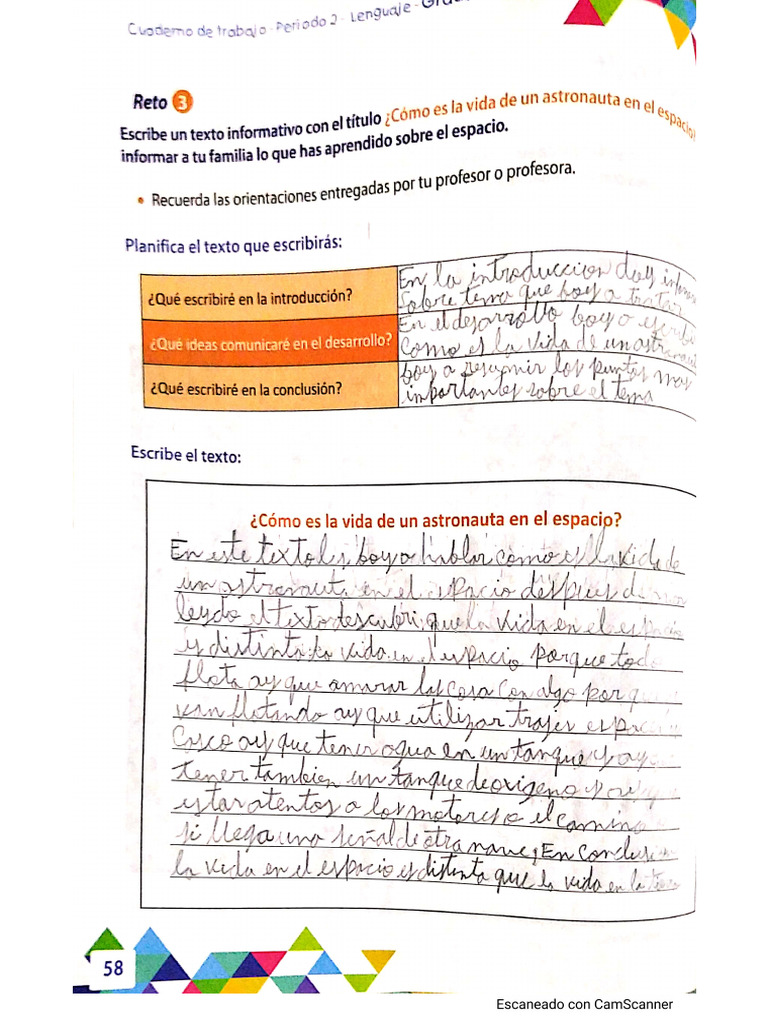 Cuaderno de trabajo - Periodo 2 - Lenguaje -
Reto 3
Escribe un texto informativo con el título ¿Cómo es la vida de un astronauta en el espacio?
informar a tu familia lo que has aprendido sobre el espacio.
• Recuerda las orientaciones entregadas por tu profesor o profesora.
Planifica el texto que escribirás:
¿Qué escribiré en la introducción?
En la introduccion
Sobre tema que boy a tratar
¿Qué ideas comunicaré en el desarrollo?
En el desarrollo boy a
Como es la vida de un
¿Qué escribiré en la conclusión?
boy a resumir los puntos mas
inportantes sobre el tema
Escribe el texto:
¿Cómo es la vida de un astronauta en el espacio?
En este texto les boy a hablar como es la vida de
un astronauta en el espacio despues de
leydo el texto descubri, que la vida en el
es distinta la vida en el espacio porque todo
flota ay que amarar las cosa con algo por
van flotando ay que utilizar trajes
Casco ay que tener agua en un tanque y ay
tener tambien un tanque de oxigeno y
estar atentos a los motores o el camino
si llega una señal de otra nave, En
la vida en el espacio es distinta que la vida en la
58
Escaneado con CamScanner